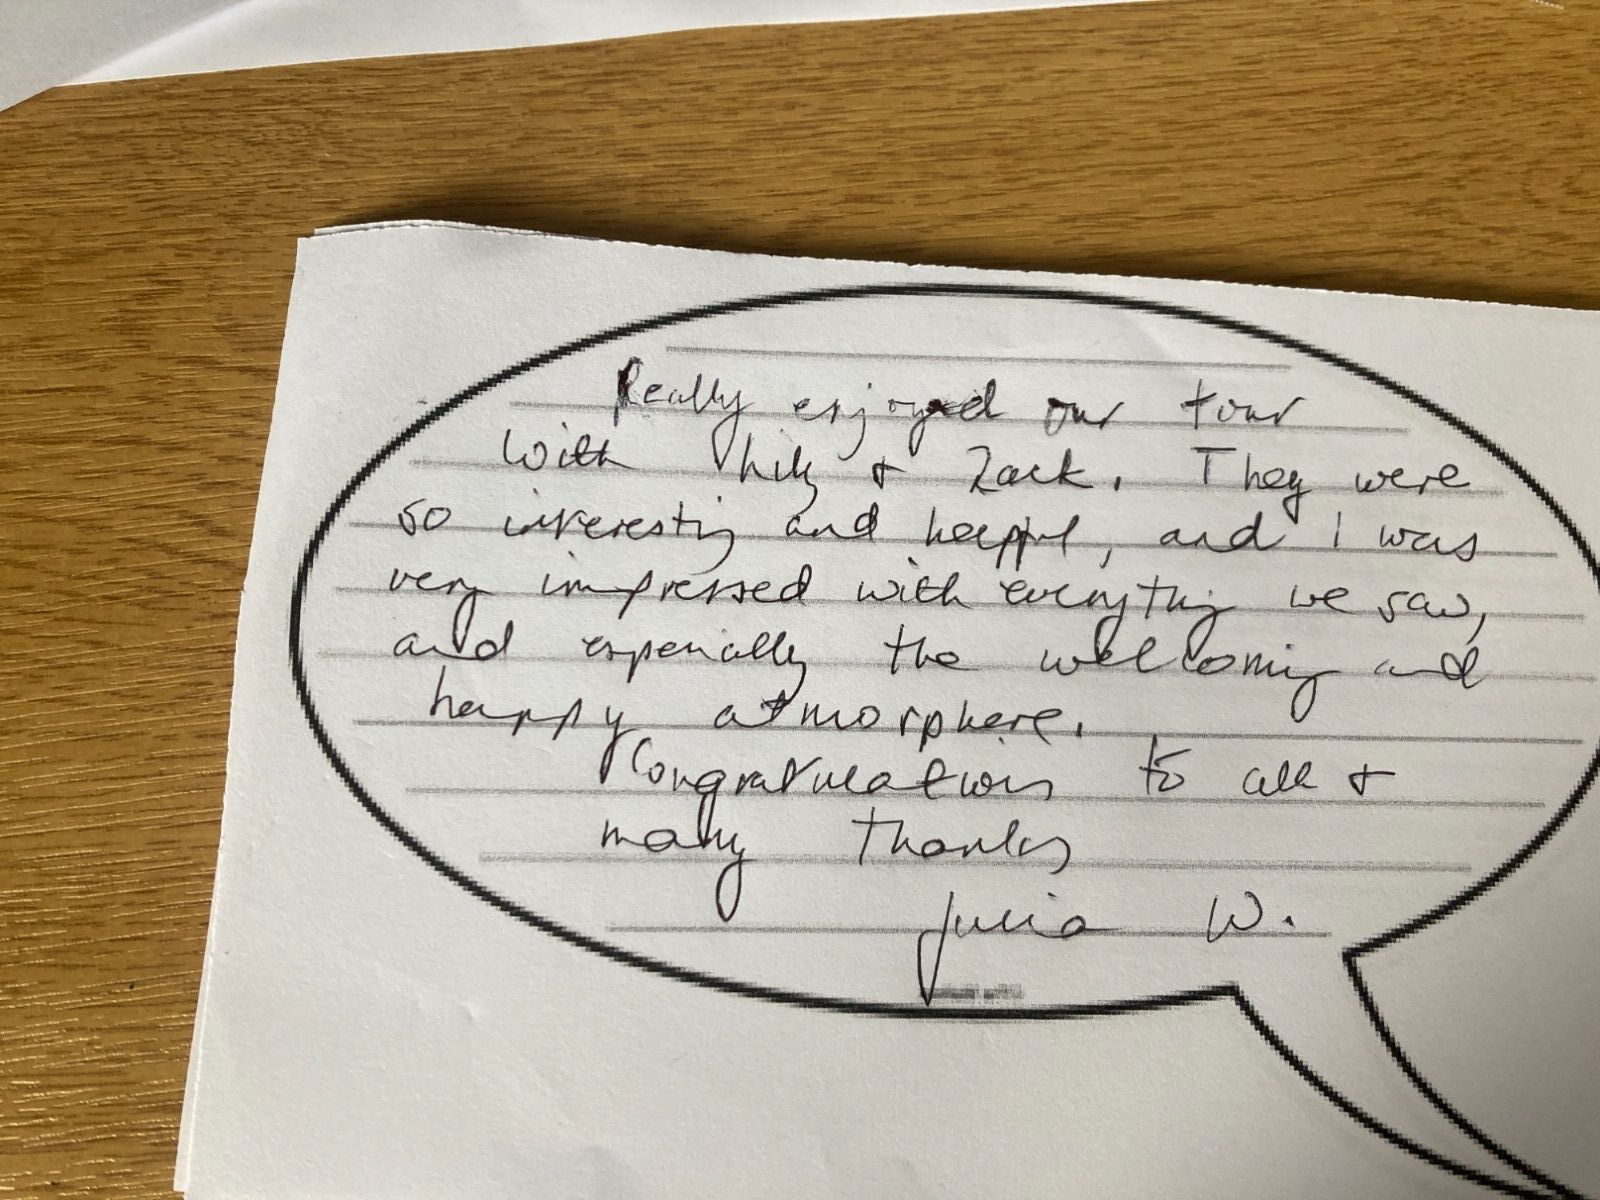 Really enjoyed our tour
with & Zack. They were
so interesting and helpful, and I was
very impressed with everything we saw,
and especially the welcoming and
happy atmosphere.
Congratulations to all &
many thanks
Julia W.